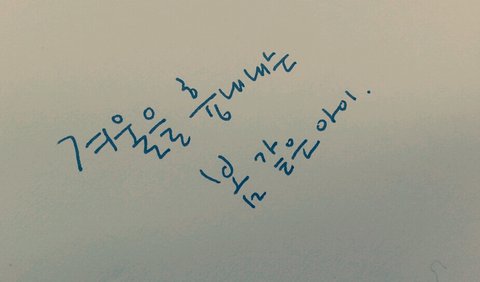 겨울을 흉내내는
봄 같은 아이.